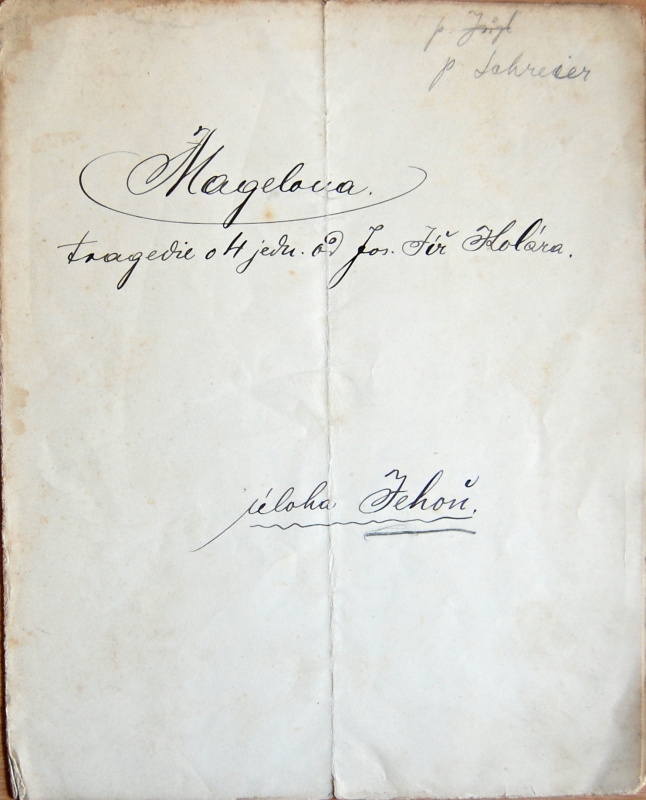 p.
p. Schreier
Magelova.
tragedie o 4 jedn. od Jos. Jiř Kolára.
úloha Jehoň.